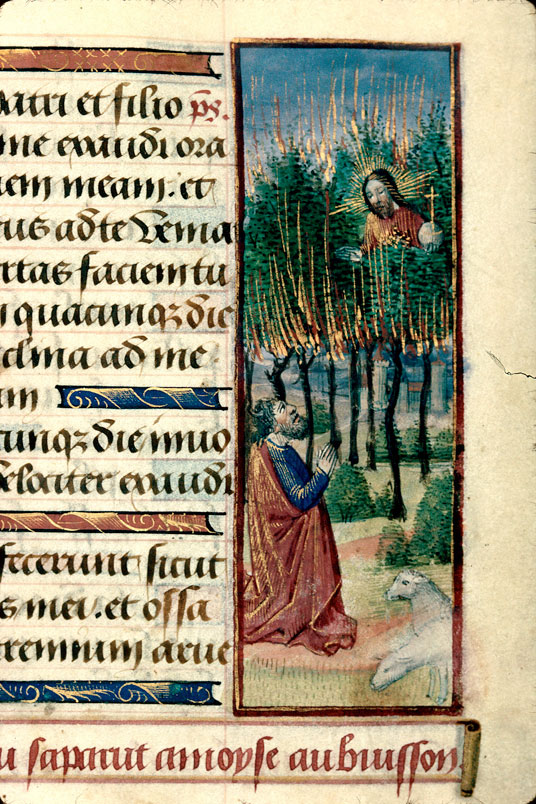 patri et filio ps.
me exaudi ora
nem meam. et
eus ad te vema
ertas faciem tu
quacunqz die
clma ad me
am
cunqz die inuo
velociter exaudi
fecerunt sicut
s mei. et ossa
cremium arue
u saparut a moyse au buisson